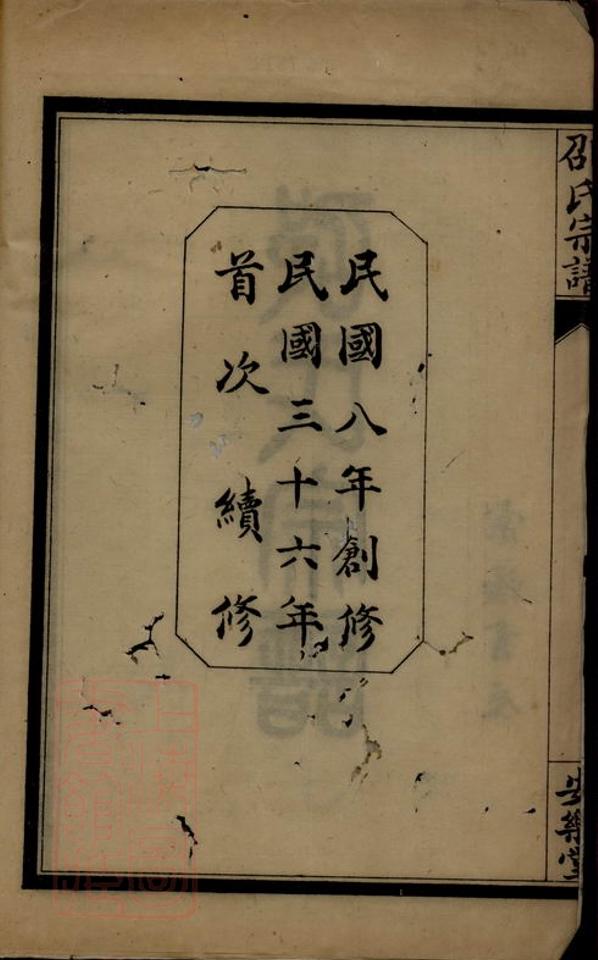 邵氏宗譜
安樂堂
民國八年創修
民國三十六年
首次續修